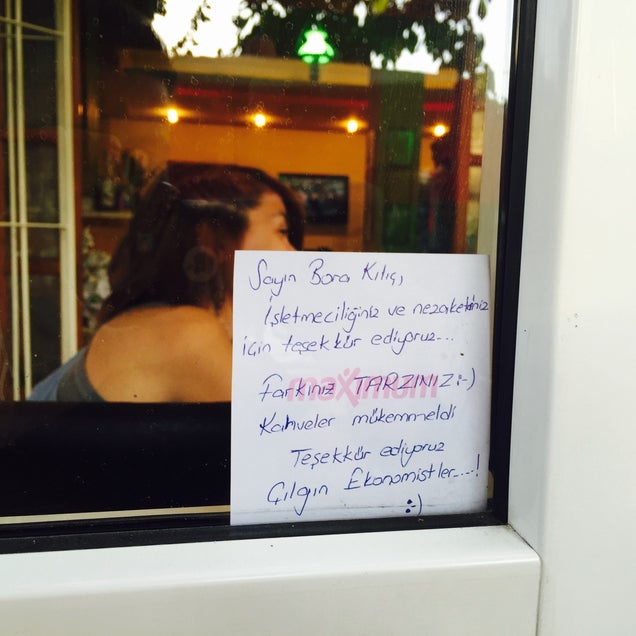 Sayın Bora Kılıç,
İşletmeciliğiniz ve nezaketiniz
için teşekkür ediyoruz...
Farkınız TARZINIZ :-)
maximum
Kahveler mükemmeldi
Teşekkür ediyoruz
Çılgın Ekonomistler....!
:-)